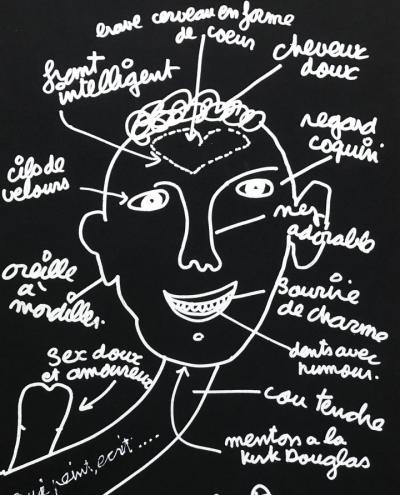 crane cerveau en forme
de coeur
cheveux
doux
front
intelligent
regard
coquin
cils de
velours
nez
adorable
oreille
à
mordiller.
sourire
de charme
dents avec
humour.
sex doux
et amoureux
cou tendre
menton a la
Kirk Douglas
peint, ecrit....